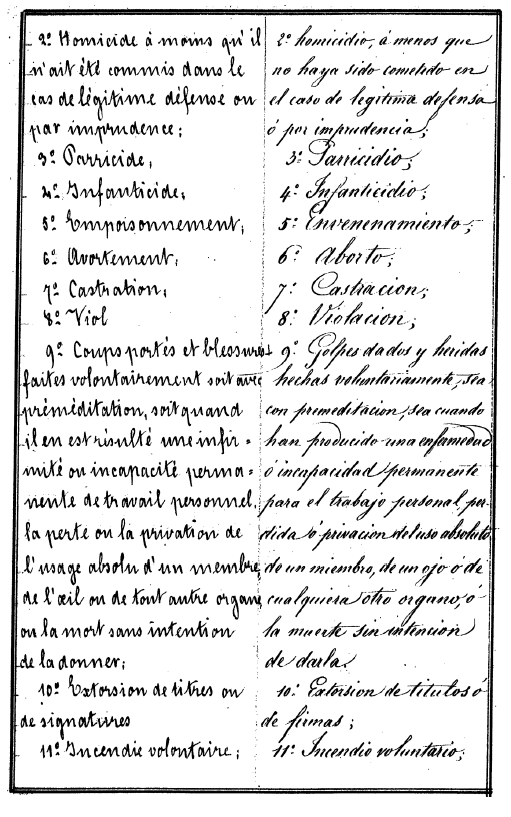 2º Homicide à moins qu'il
n'ait été commis dans le
cas de légitime défense ou
par imprudence;
3º Parricide;
4º Infanticide;
5º Empoisonnement;
6º Avortement;
7º Castration;
8º Viol
9º Coups portés et blessures
faites volontairement soit avec
préméditation, soit quand
il en est résulté une infir-
mité ou incapacité perma-
nente de travail personnel,
la perte ou la privation de
l'usage absolu d'un membre,
de l'œil ou de tout autre organe,
ou la mort sans intention
de la donner;
10º Extorsion de titres ou
de signatures
11º Incendie volontaire;
2º homicidio, á menos que
no haya sido cometido en
el caso de legitima defensa
ó por imprudencia;
3º Parricidio;
4º Infanticidio;
5º Envenenamiento;
6º Aborto;
7º Castracion;
8º Violacion;
9º Golpes dados y heridas
hechas voluntariamente, sea
con premeditacion, sea cuando
han producido una enfamedad
ó incapacidad permanente
para el trabajo personal, per-
dida ó privacion del uso absoluto
de un miembro, de un ojo ó de
cualquiera otro organo, ó
la muerte sin intencion
de darla.
10º Extorsion de titulos ó
de firmas;
11º Incendio voluntario;